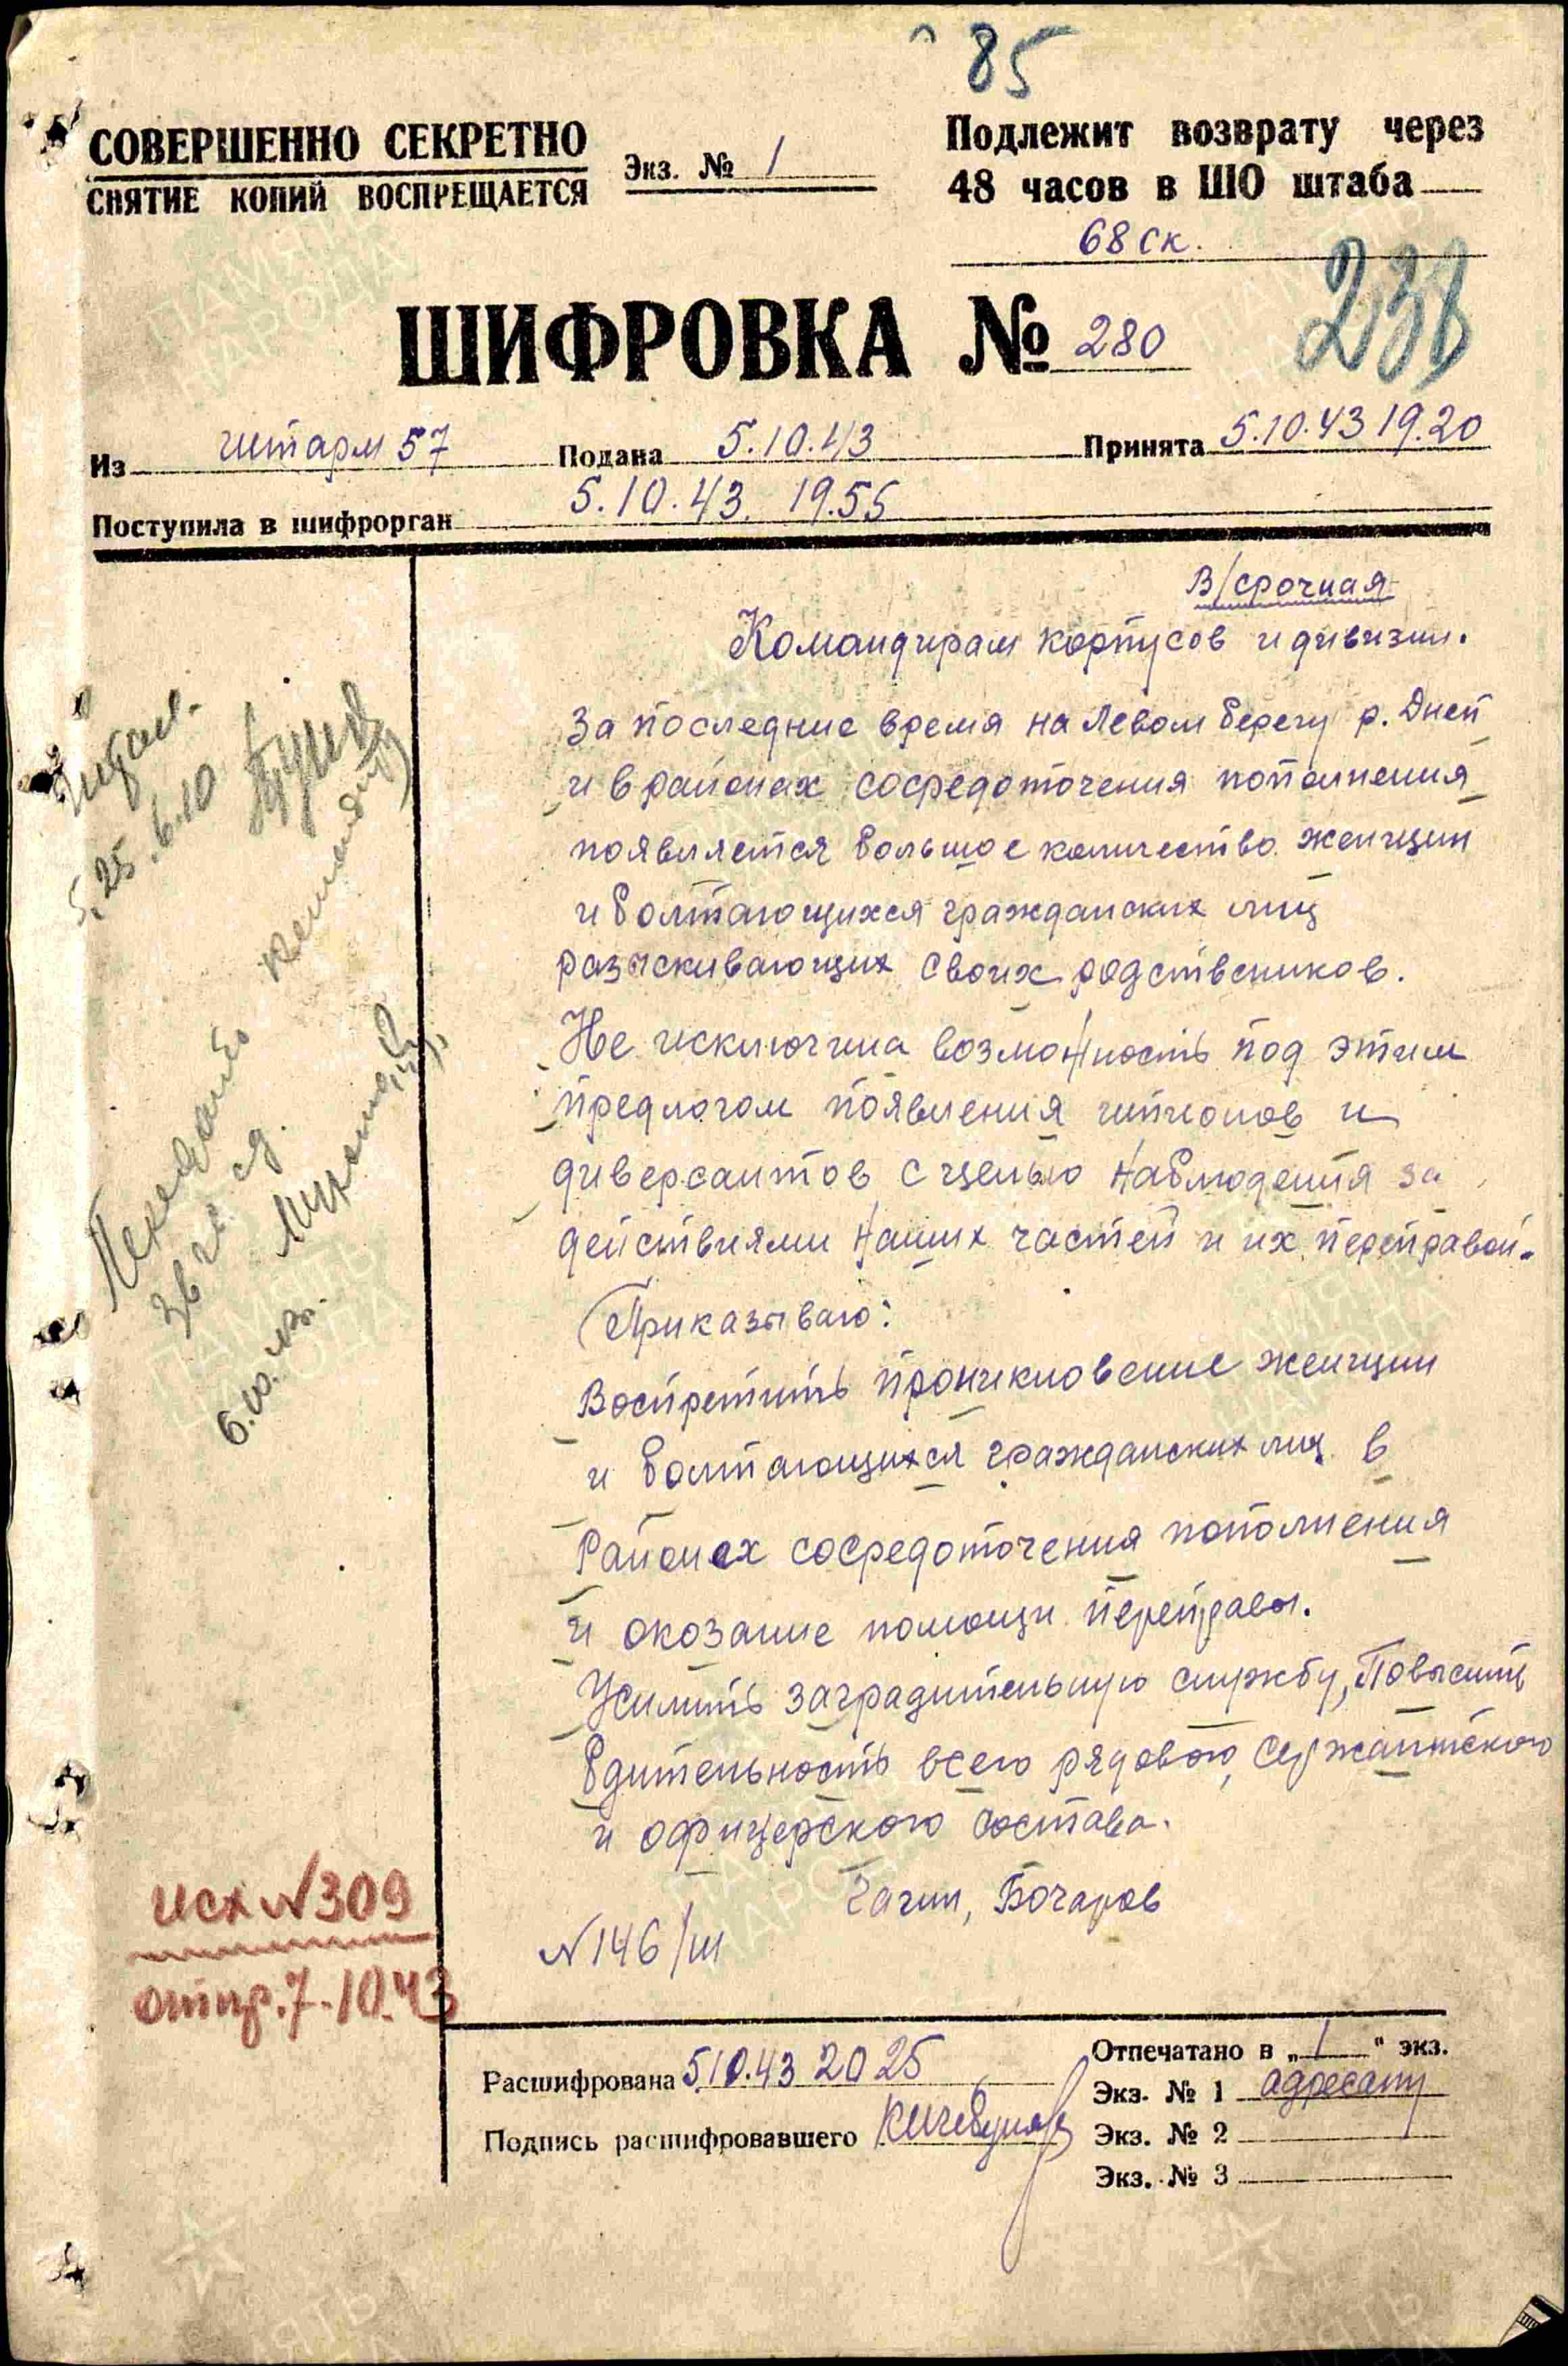 85
СОВЕРШЕННО СЕКРЕТНО
СНЯТИЕ КОПИЙ ВОСПРЕЩАЕТСЯ
Экз. № 1
Подлежит возврату через
48 часов в ШО штаба
68 ск.
ШИФРОВКА № 280
Из штарм 57 Подана 5.10.43 Принята 5.10.43 19.20
Поступила в шифрорган 5.10.43. 19.55
В/срочная
Командирам корпусов и дивизии.
За последние время на левом берегу р. Днеп
и в районах сосредоточения пополнения
появляется большое количество женщин
и болтающихся гражданских лиц
разыскивающих своих родствеников.
Не исключина возможность под этим
предлогом появления шпионов и
диверсантов с целью наблюдения за
действиями наших частей и их переправой.
Приказываю:
Воспретить проникновение женщин
и болтающихся гражданских лиц в
районах сосредоточения пополнения
и окозание помощи переправы.
Усилить заградительную службу, Повысить
бдительность всего рядового, сержантского
и офицерского состава.
Гаген, Бочаров
N 146/ш
5.25. 6.10
Передать
6.10.43.
исх N 309
отпр. 7.10.43
Расшифрована 5.10.43 20 25
Подпись расшифровавшего
Отпечатано в „1“ экз.
Экз. № 1 адресату
Экз. № 2
Экз. № 3
ПАМЯТЬ
НАРОДА